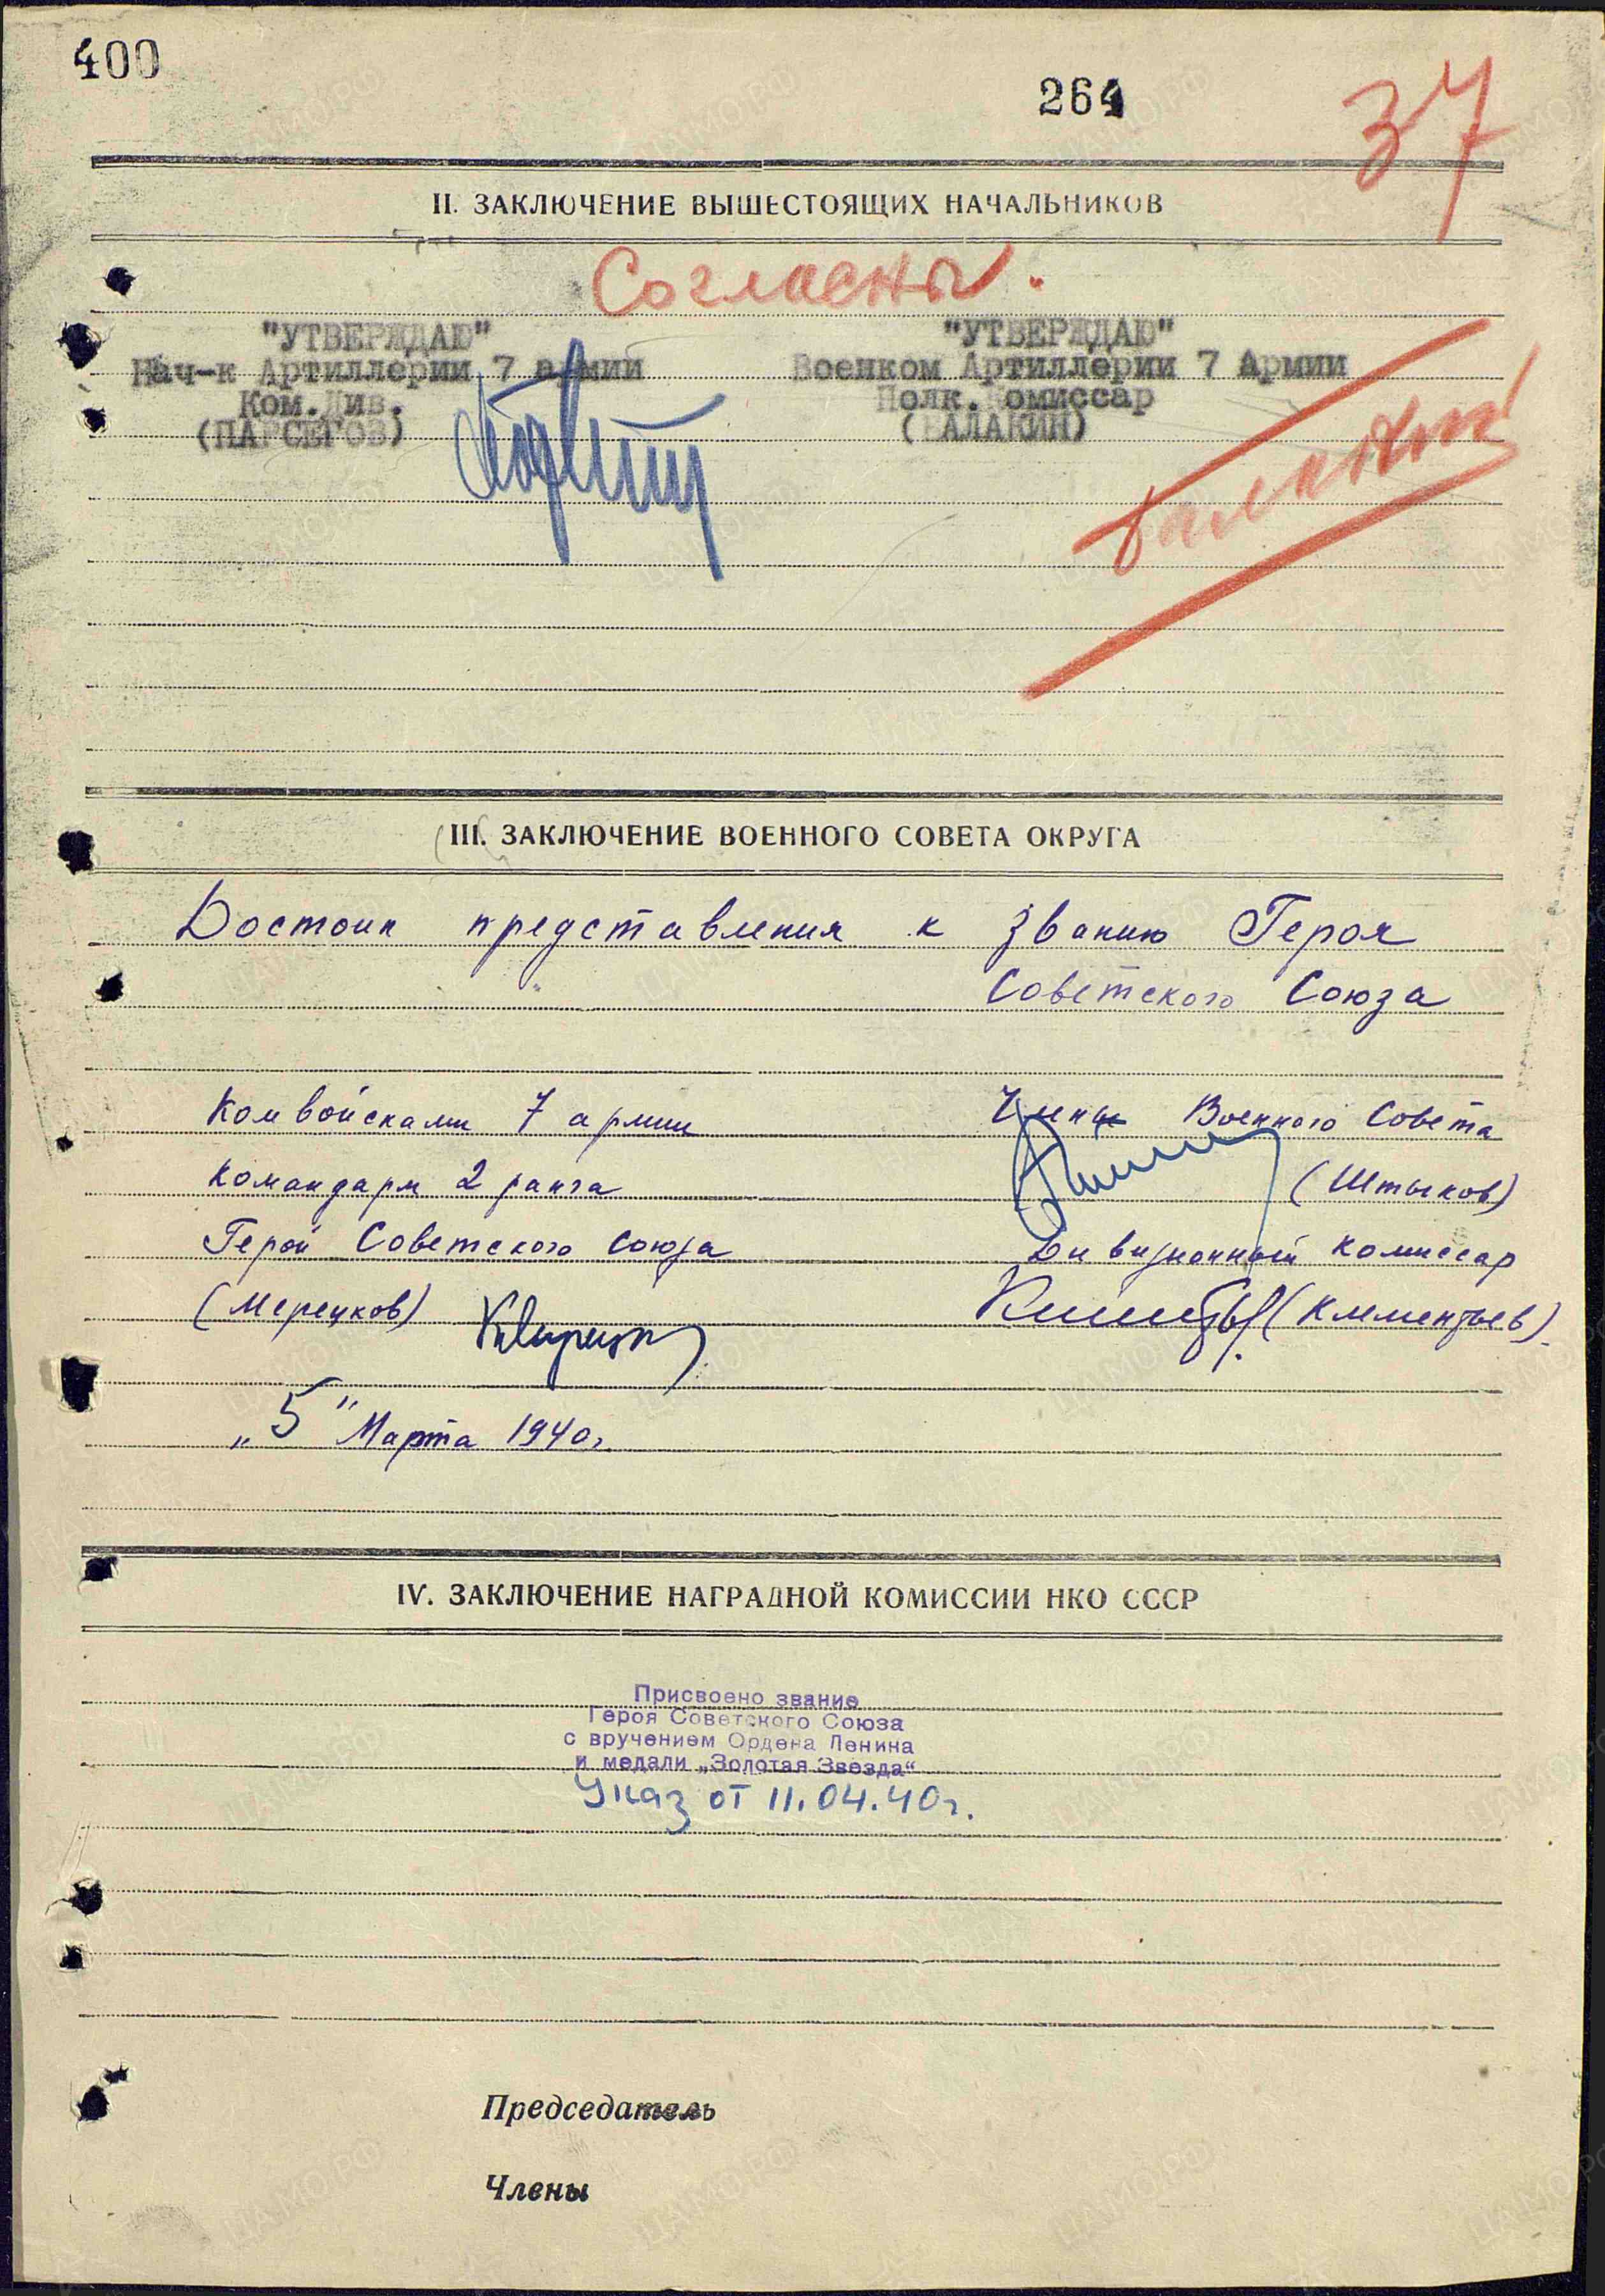 400
264
37
II. ЗАКЛЮЧЕНИЕ ВЫШЕСТОЯЩИХ НАЧАЛЬНИКОВ
Согласны.
"УТВЕРЖДАЮ"
Нач-к Артиллерии 7 армии
Ком.Див.
(ПАРСЕГОВ)
"УТВЕРЖДАЮ"
Военком Артиллерии 7 Армии
Полк.Комиссар
(БАЛАКИН)
III. ЗАКЛЮЧЕНИЕ ВОЕННОГО СОВЕТА ОКРУГА
Достоин представления к званию Героя
Советского Союза
Ком войсками 7 армии
Командарм 2 ранга
Герой Советского Союза
(Мерецков)
Члены Военного Совета
(Штыков)
Дивизионный комиссар
(Клементьев)
„5" Марта 1940г.
IV. ЗАКЛЮЧЕНИЕ НАГРАДНОЙ КОМИССИИ НКО СССР
Присвоено звание
Героя Советского Союза
с вручением Ордена Ленина
и медали „Золотая Звезда"
Указ от 11.04.40г.
Председатель
Члены
ЦАМО.РФ